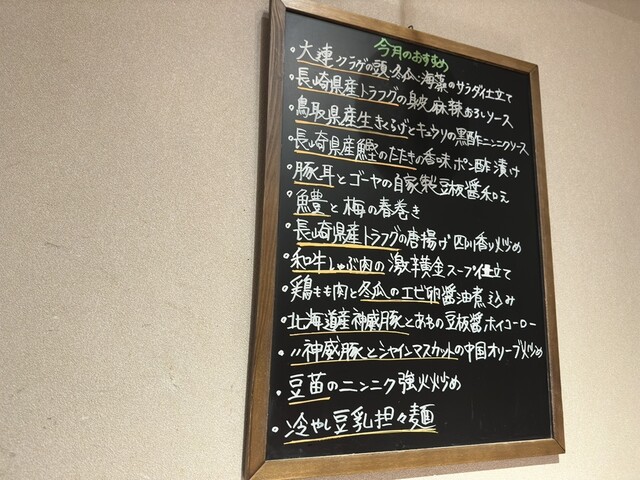 今月のおすすめ
・大連クラゲの頭・冬瓜・海藻のサラダ仕立て
・長崎県産トラフグの皮 麻辣おろしソース
・鳥取県産生きくらげとキュウリの黒酢ニンニクソース
・長崎県産鰹のたたきの香味ポン酢漬け
・豚耳とゴーヤの自家製豆板醤和え
・鱧と梅の春巻き
・長崎県産トラフグの唐揚げ 四川香り炒め
・和牛しゃぶ肉の激辛黄金スープ仕立て
・鶏もも肉と冬瓜のエビ卵醤油煮込み
・北海道産神威豚とあもの豆板醤ホイコーロー
・〃神威豚とシャインマスカットの中国オリーブ炒め
・豆苗のニンニク強火炒め
・冷やし豆乳担々麺